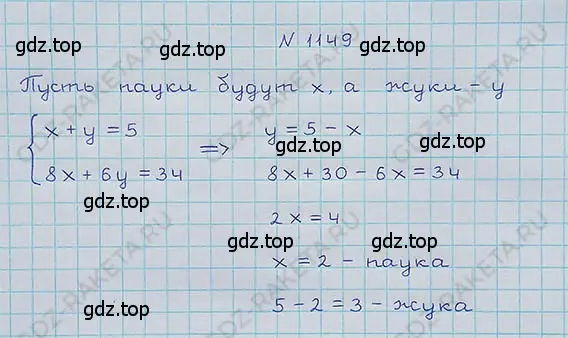 N 1149
Пусть пауки будут x, а жуки - y
{ x + y = 5 => y = 5 - x
8x + 6y = 34 8x + 30 - 6x = 34
2x = 4
x = 2 - паука
5 - 2 = 3 - жука
gdz.top
gdz.top
gdz.top
gdz.top
gdz.top
gdz.top
gdz.top
gdz.top
gdz.top
GDZ-RAKETA.RU